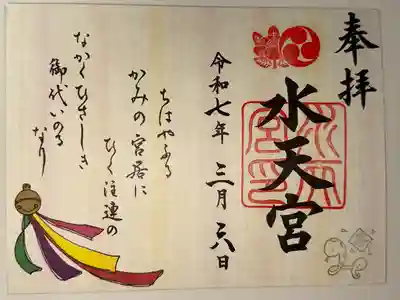 奉拝
水天宮
令和七年 三月 六日
ちはやふる
かみの宮居に
ひく注連の
なかくひさしき
御代いのる
なり